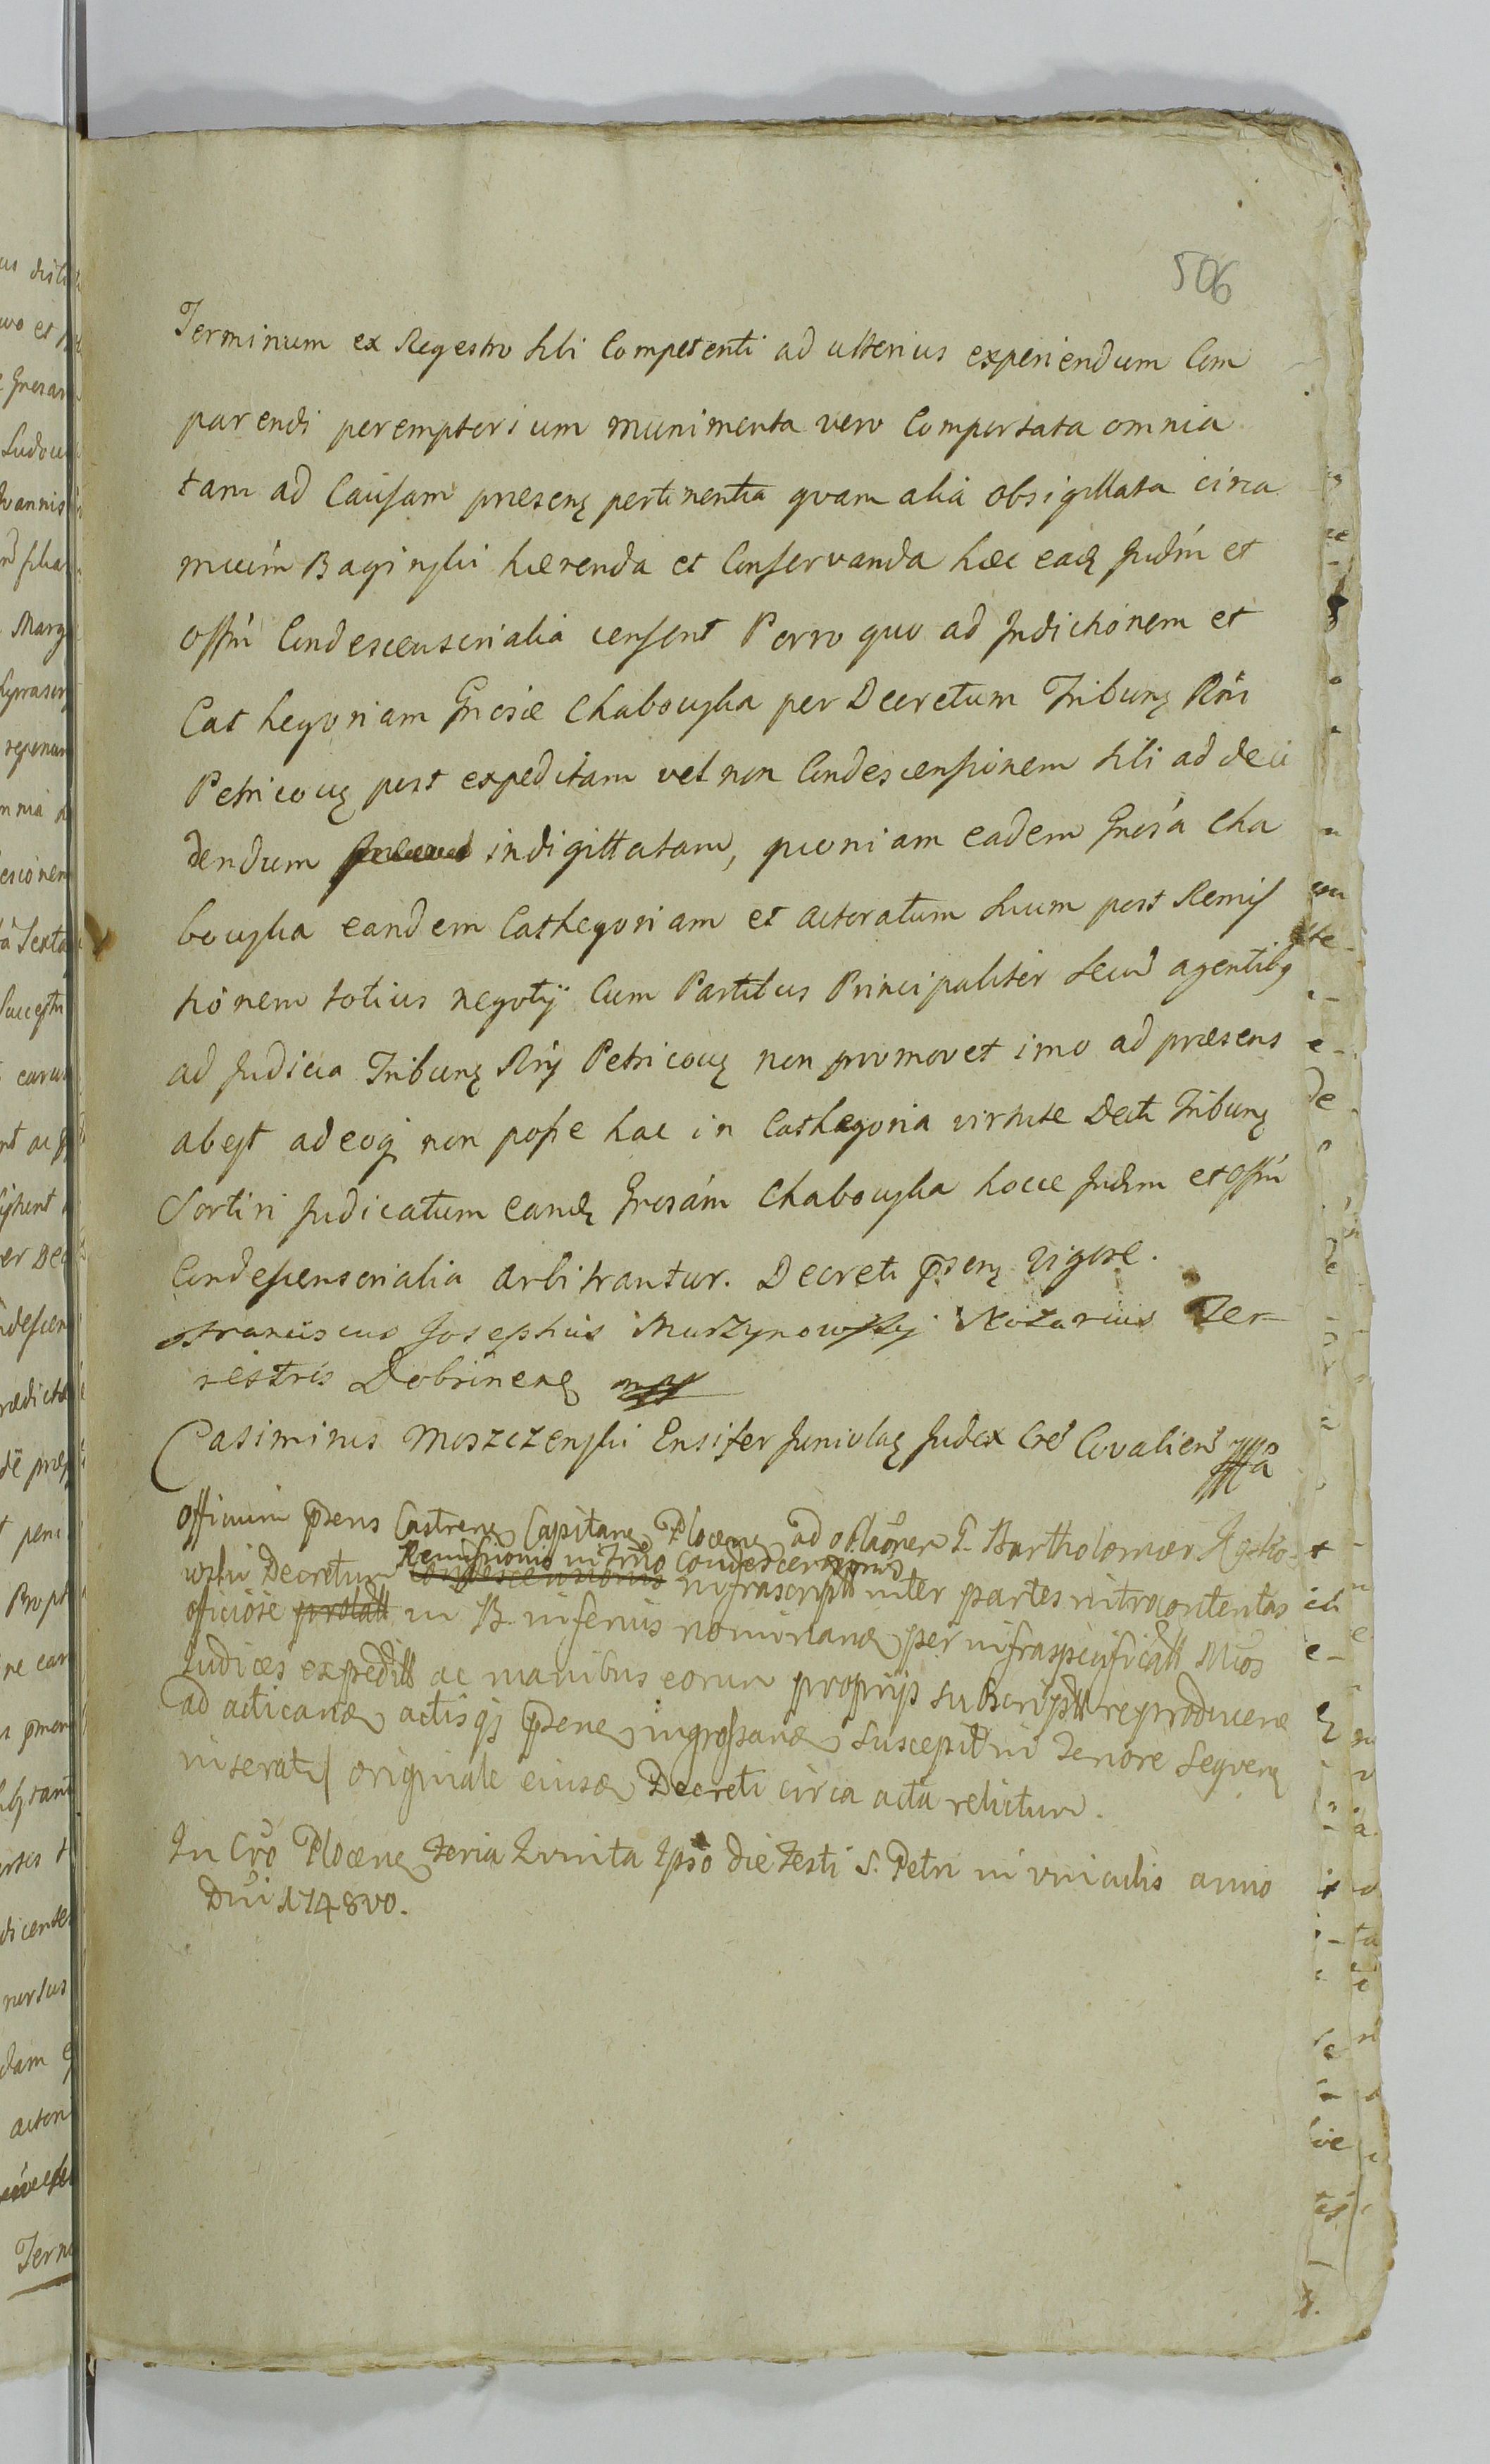 506
Terminum ex Regestro sibi Competenti ad ulterius experiendum Com
parendi peremptorium munimenta vero Comportata omnia
tam ad Causam præsenę pertinentia qvam alia obsigillata circa
mucim Baginski hærenda et Conservanda hæc eadę Judm et
Offm Condescensorialia censent Porro quo ad Indictionem et
Cathegoriam Gnosæ Chabouska per Decretum Tribunę Rni
Petricovę post expeditam vel non Condescensionem sibi ad deci
dendum indigittatam, quoniam eadem Gnosa Cha
bouska eandem Cathegoriam et actoratum suum post Remis
sionem totius negotÿ Cum Partibus Principaliter secũ agentibꝫ
ad Judicia Tribunę Rnÿ Petricovę non promovet imo ad præsens
abest adeoqꝫ non posse hac in Cathegoria virtute Decti Tribunę
Sortiri Judicatum eandę Gnosam Chabouska hocce Judm et Offm
Condescensorialia arbitrantur. Decreti p̃senę vigore.
Franciscus Josephus Murzynowsky Notarius Ter-
restris Dobrinenę mp
Casimirus Moszczenski Ensifer Junivlaę Judex Cre͂ Covalien͂
Officium p̃sens Castrenę Capitanę Plocenę ad oblaõnem G. Bartholomæi
wski Decretum Remissionis in Tm̃o Condescensionis
condescensionis infrascriptt inter partes introcontentas
officiose prolatt in B. inferius nominanđ per infraspecificatt Mcos
Judices expeditt ac manibus eorum proprÿs subscriptt reproducenđ
ad acticanđ actisqꝫ p̃senę ingrossanđ suscepit in tenore seqvenę
inserat / originale eiusđ Decreti circa acta relictum.
In Cro͂ Plocenę Feria Qvinta Ipso die Festi S. Petri in vinculis anno
Dni 1748vo.